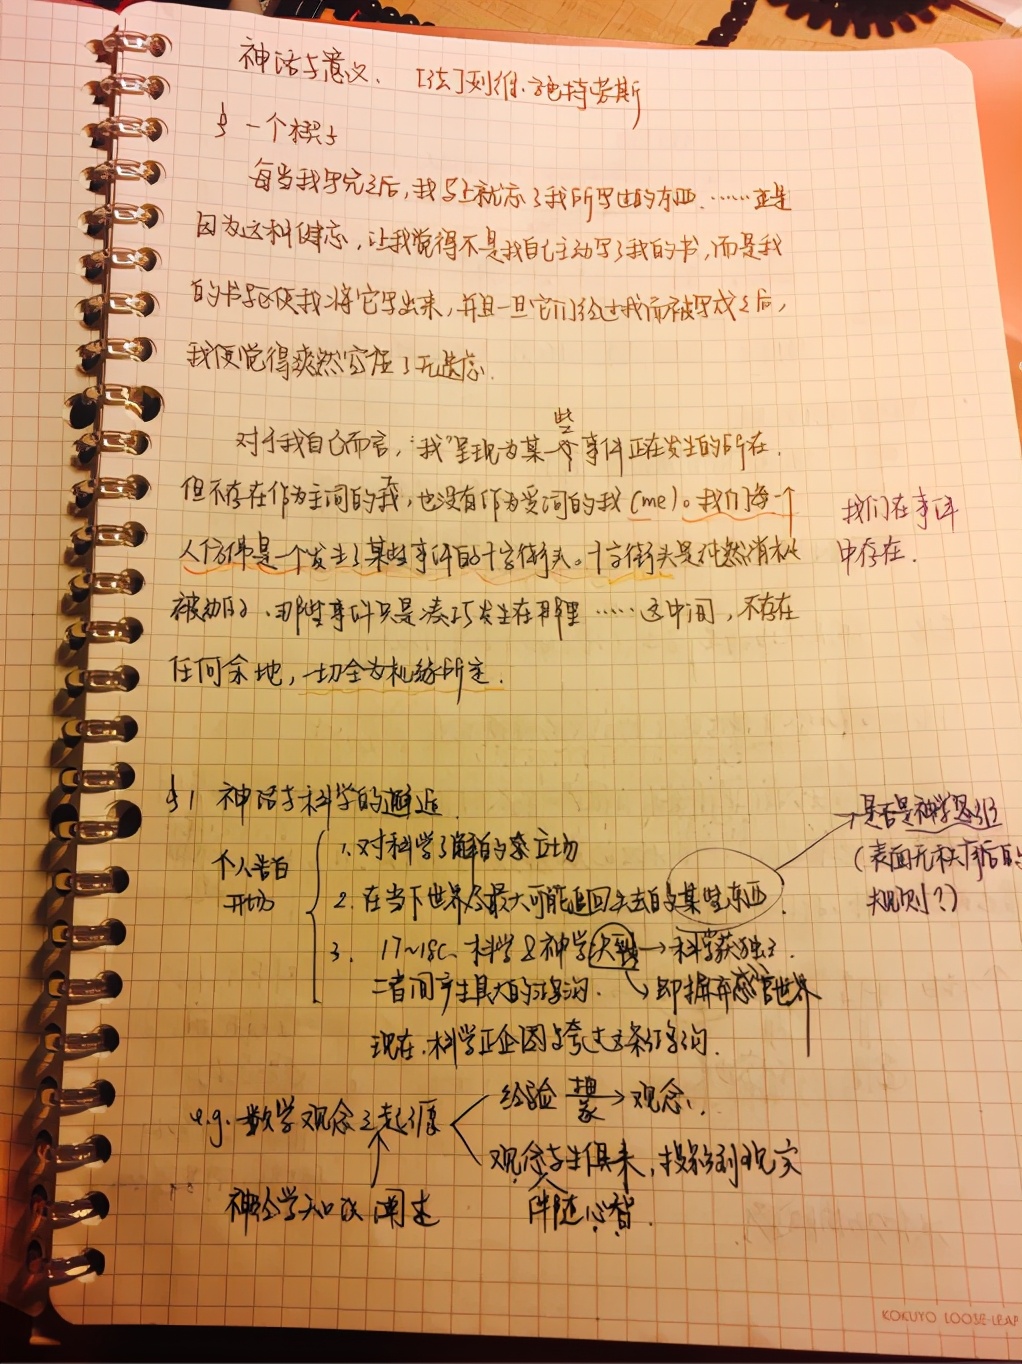 神话与意义. [法]列维·施特劳斯
§ 一个楔子
每当我写完之后,我马上就忘了我所写过的东西.……正是
因为这种健忘,让我觉得不是我自己主动写了我的书,而是我
的书驱使我将它写出来,并且一旦它们经过我而被写成之后,
我便觉得爽然空框了无遗忘.
些
对于我自己而言,“我”呈现为某一个事件正在发生的所在.
但不存在作为主词的我,也没有作为受词的我(me)。我们每一个
人仿佛是一个发生了某些事件的十字街头。十字街头是纯然消极
被动的.那些事件只是凑巧发生在那里……这中间,不存在
任何余地,一切全为机缘所定.
我们在事件
中存在.
§1 神话与科学的邂逅
个人告白
开场
1.对科学了解的立场
2.在当下世界尽最大可能追回失去的某些东西.
→是否是神学
(表面无秩序后的
规则?)
3. 17~18C、科学&神学决裂→科学获独立.
二者间产生具大的鸿沟. ↘即摒弃感官世界
现在.科学正企图跨过这条鸿沟.
e.g.数学观念之起源
经验 抽象→观念.
观念与生俱来,投射到现实
神经学知识阐述
伴随心智.
KOKUYO LOOSE-LEAF